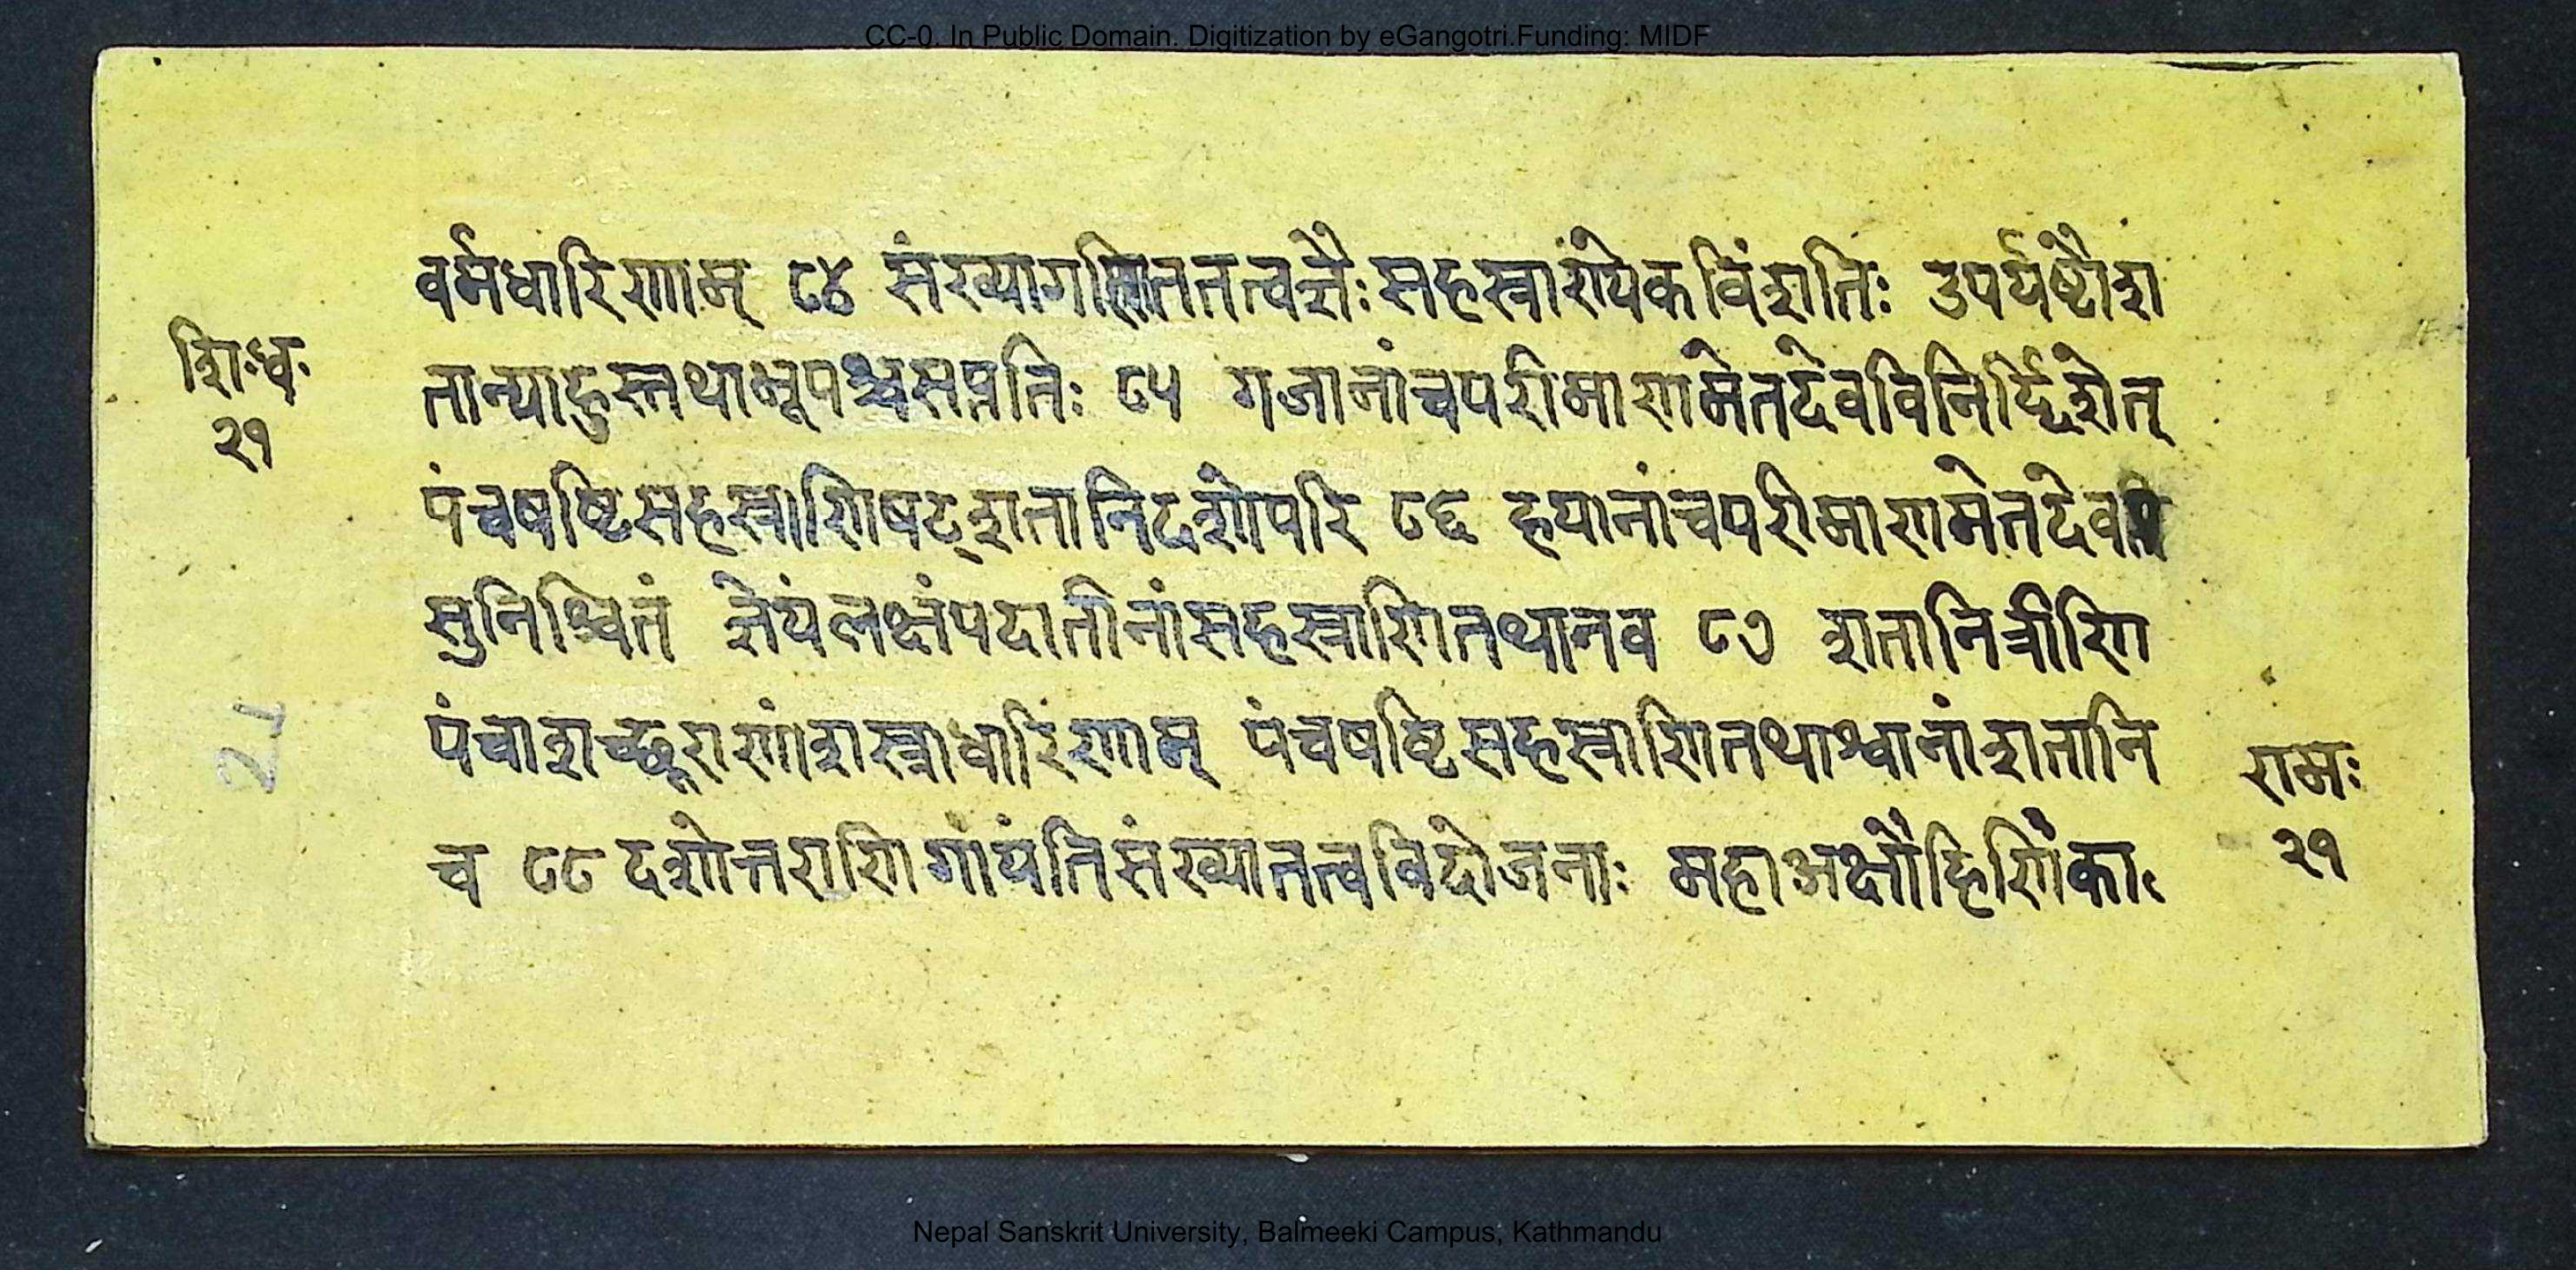 CC-0. In Public Domain. Digitization by eGangotri.Funding: MIDF
वर्मधारिणाम् ८४ संख्यागणिततत्वज्ञैःसहस्राण्येकविंशतिः उपर्यष्टौश
शि॰ध॰
२१
तान्याहुस्तथाभूपश्चसप्ततिः ८५ गजानांचपरीमाणमेतदेवविनिर्द्दिशेत्
पंचषष्टिसहस्राणिषट्शतानिदशोपरि ८६ हयानांचपरीमाणमेतदेव
सुनिश्चितं ज्ञेयंलक्षंपदातीनांसहस्राणितथानव ८७ शतानित्रीणि
पंचाशच्छूराणांशस्त्राधारिणाम् पंचषष्टिसहस्राणितथाश्वानांशतानि
च ८८ दशोत्तराणिगांयंतिसंख्यातत्वविदोजनाः महाअक्षौहिणिंका
रामः
२१
21
Nepal Sanskrit University, Balmeeki Campus, Kathmandu